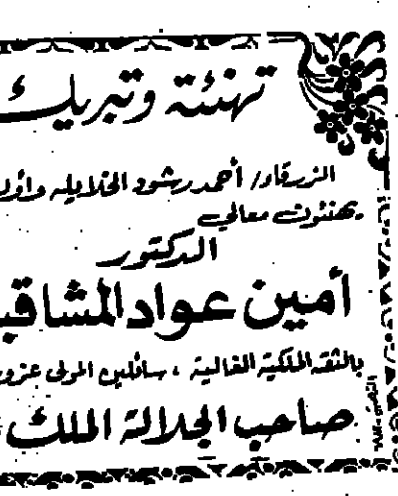 تهنئة وتبريك
الزرقاء/ أحمد رشود الخلايله وأولا
يهنئون معالي
الدكتور
أمين عواد المشاقبـ
بالثقة الملكية الغالية ، سائلين المولى عز و
صاحب الجلالة الملك